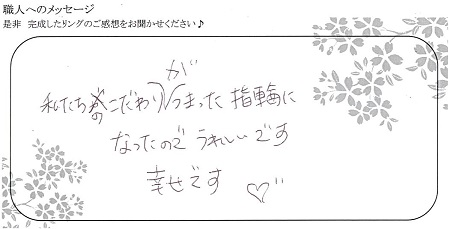 職人へのメッセージ
是非 完成したリングのご感想をお聞かせください♪
私たちのこだわりがつまった指輪に
なったので うれしいです
幸せです ♡